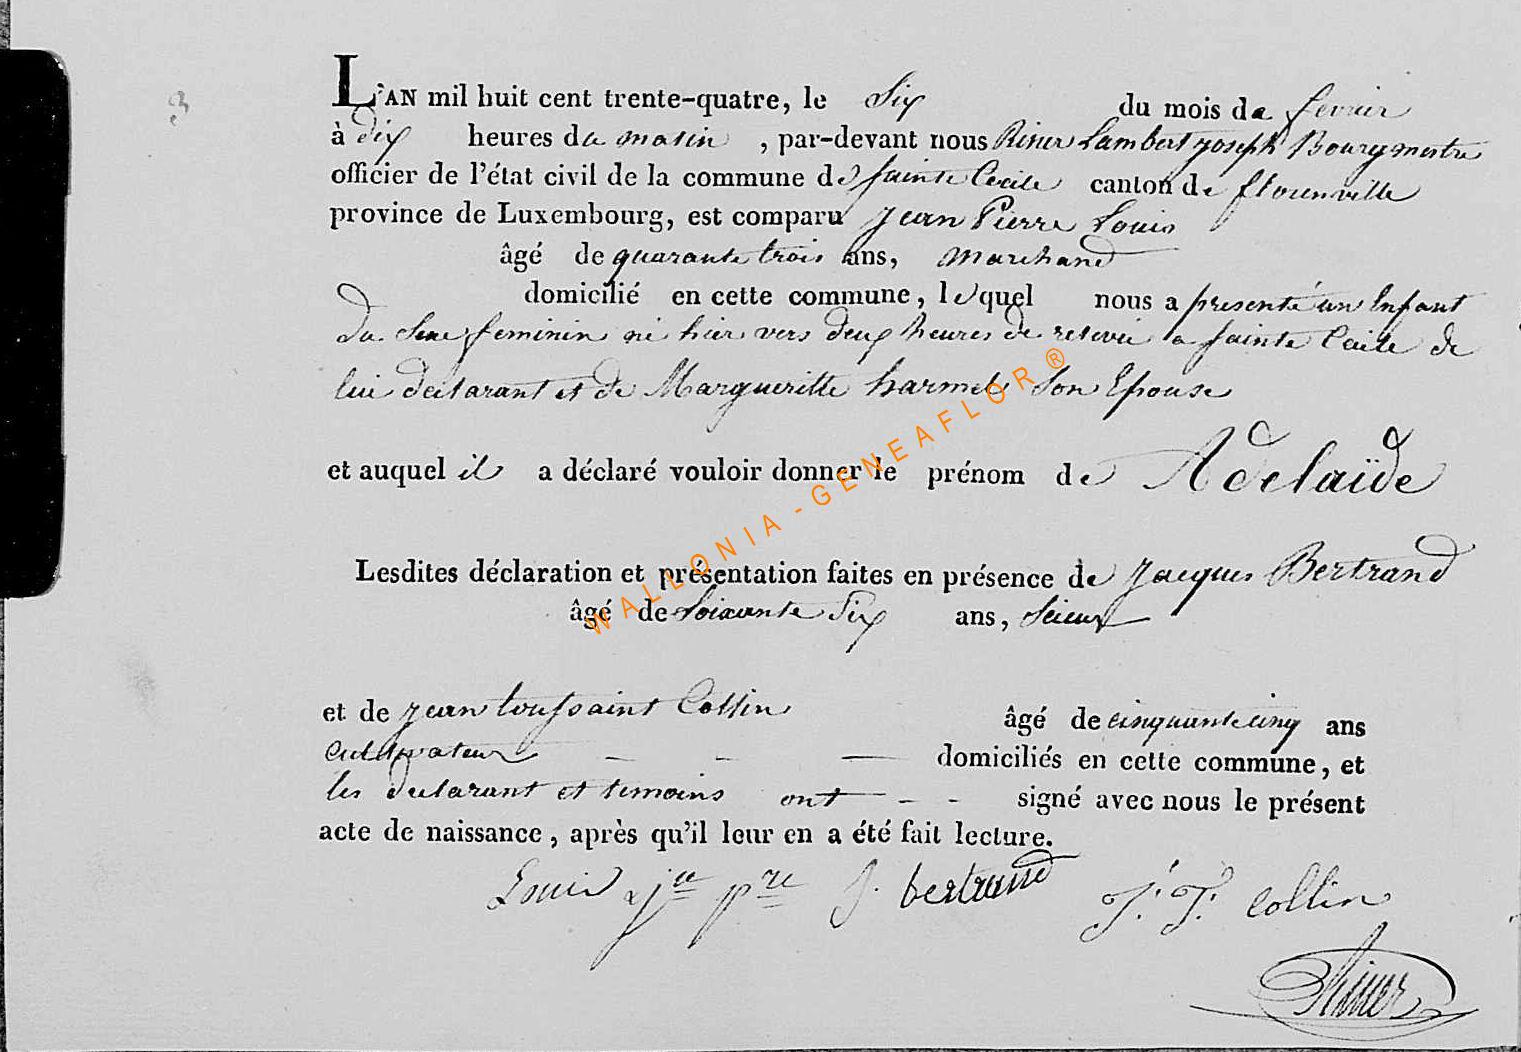 3
L'AN mil huit cent trente-quatre, le Six du mois de fevrier
à dix heures du matin , par-devant nous Riner Lambert joseph Bourgmestre
officier de l'état civil de la commune de Sainte Cecile canton de florenville
province de Luxembourg, est comparu jean Pierre Louis
âgé de quarante trois ans, marchand
domicilié en cette commune, lequel nous a presenté un Enfant
du Sexe feminin né hier vers deux heures de relevée a Sainte Cecile de
lui declarant et de Margueritte harmel Son Epouse
et auquel il a déclaré vouloir donner le prénom de Adelaïde
Lesdites déclaration et présentation faites en présence de jacques Bertrand
âgé de Soixante Six ans, Scieur
et de jean toussaint Collin âgé de cinquante cinq ans
cultivateur — - — domiciliés en cette commune, et
les declarant et temoins ont — - - signé avec nous le présent
acte de naissance, après qu'il leur en a été fait lecture.
Louis j pre J. bertrand J. T. Collin
Riner
WALLONIA - GENEAFLOR ®